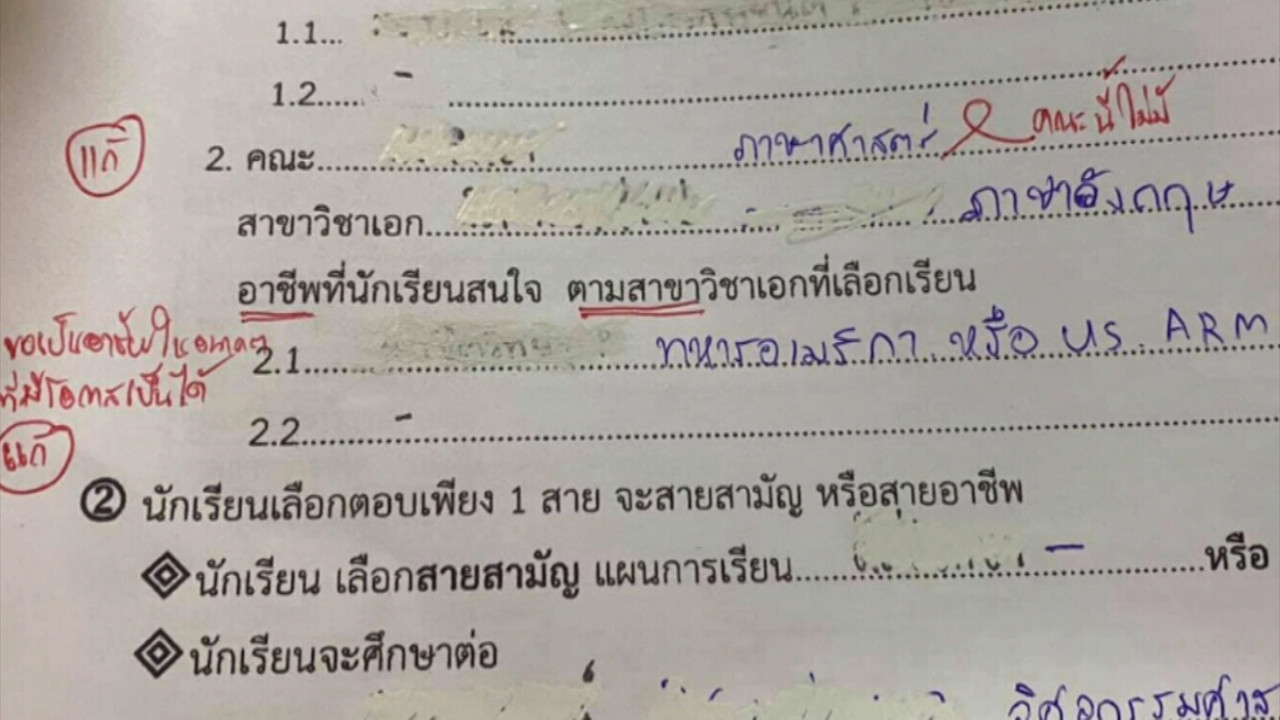 1.1...
1.2.....-
แก้ 2. คณะ..... ภาษาศาสตร์ คณะนี้ไม่มี
สาขาวิชาเอก..... ภาษาอังกฤษ
อาชีพที่นักเรียนสนใจ ตามสาขาวิชาเอกที่เลือกเรียน
ขอเป็นอาชีพในอนาคต
2.1..... ทหารอเมริกา หรือ US ARM
ที่มีโอกาสเป็นได้
2.2.....-
แก้
② นักเรียนเลือกตอบเพียง 1 สาย จะสายสามัญ หรือสายอาชีพ
นักเรียน เลือกสายสามัญ แผนการเรียน.....-.....หรือ
นักเรียนจะศึกษาต่อ